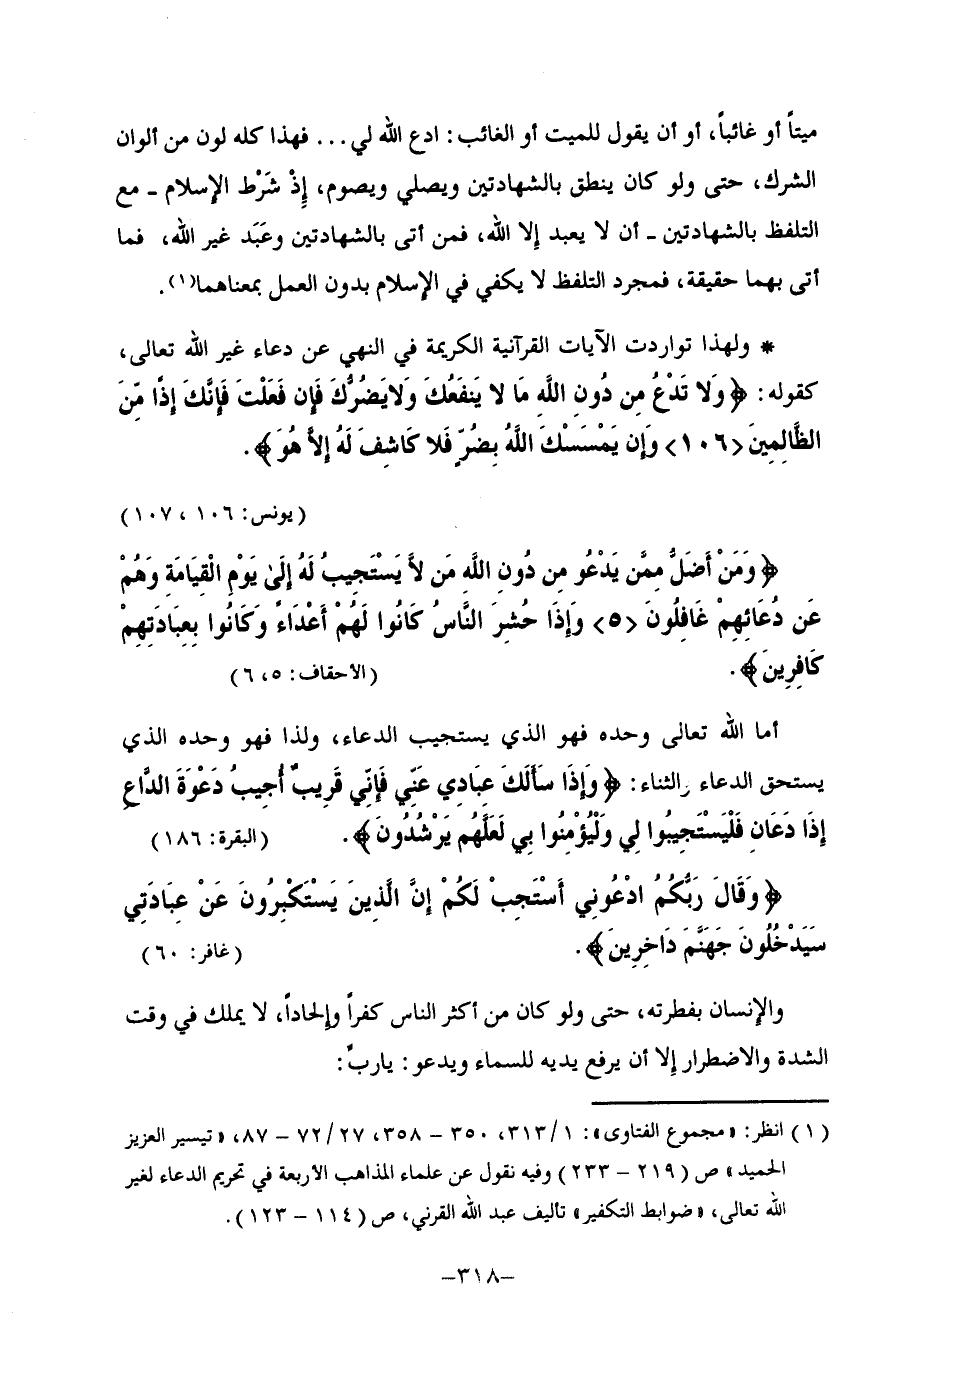 ميتاً أو غائباً، أو أن يقول للميت أو الغائب: ادع الله لي... فهذا كله لون من ألوان
الشرك، حتى ولو كان ينطق بالشهادتين ويصلي ويصوم، إِذْ شَرْط الإسلام ـ مع
التلفظ بالشهادتين ـ أن لا يعبد إلا الله، فمن أتى بالشهادتين وعَبَد غير الله، فما
أتى بهما حقيقة، فمجرد التلفظ لا يكفي في الإسلام بدون العمل بمعناهما(١).
* ولهذا تواردت الآيات القرآنية الكريمة في النهي عن دعاء غير الله تعالى،
كقوله: ﴿وَلا تَدْعُ مِن دُونِ اللَّهِ مَا لا يَنفَعُكَ وَلايَضُرُّكَ فَإِن فَعَلْتَ فَإِنَّكَ إِذًا مِّنَ
الظَّالِمِينَ <١٠٦> وَإِن يَمْسَسْكَ اللَّهُ بِضُرٍّ فَلا كَاشِفَ لَهُ إِلاَّ هُوَ﴾.
(يونس: ١٠٦، ١٠٧)
﴿وَمَنْ أَضَلُّ مِمَّن يَدْعُو مِن دُونِ اللَّهِ مَن لاَّ يَسْتَجِيبُ لَهُ إِلَىٰ يَوْمِ الْقِيَامَةِ وَهُمْ
عَن دُعَائِهِمْ غَافِلُونَ <٥> وَإِذَا حُشِرَ النَّاسُ كَانُوا لَهُمْ أَعْدَاءً وَكَانُوا بِعِبَادَتِهِمْ
كَافِرِينَ﴾. (الأحقاف: ٥، ٦)
أما الله تعالى وحده فهو الذي يستجيب الدعاء، ولذا فهو وحده الذي
يستحق الدعاء والثناء: ﴿وَإِذَا سَأَلَكَ عِبَادِي عَنِّي فَإِنِّي قَرِيبٌ أُجِيبُ دَعْوَةَ الدَّاعِ
إِذَا دَعَانِ فَلْيَسْتَجِيبُوا لِي وَلْيُؤْمِنُوا بِي لَعَلَّهُم يَرْشُدُونَ﴾. (البقرة: ١٨٦)
﴿وَقَالَ رَبُّكُمُ ادْعُونِي أَسْتَجِبْ لَكُمْ إِنَّ الَّذِينَ يَسْتَكْبِرُونَ عَنْ عِبَادَتِي
سَيَدْخُلُونَ جَهَنَّمَ دَاخِرِينَ﴾. (غافر: ٦٠)
والإنسان بفطرته، حتى ولو كان من أكثر الناس كفراً وإلحاداً، لا يملك في وقت
الشدة والاضطرار إلا أن يرفع يديه للسماء ويدعو: ياربّ:
(١) انظر: «مجموع الفتاوى»: ٣١٣/١، ٣٥٠ – ٣٥٨، ٧٢/٢٧ – ٨٧، «تيسير العزيز
الحميد» ص (٢١٩ – ٢٣٣) وفيه نقول عن علماء المذاهب الأربعة في تحريم الدعاء لغير
الله تعالى، «ضوابط التكفير» تأليف عبد الله القرني، ص (١١٤ – ١٢٣).
–٣١٨–